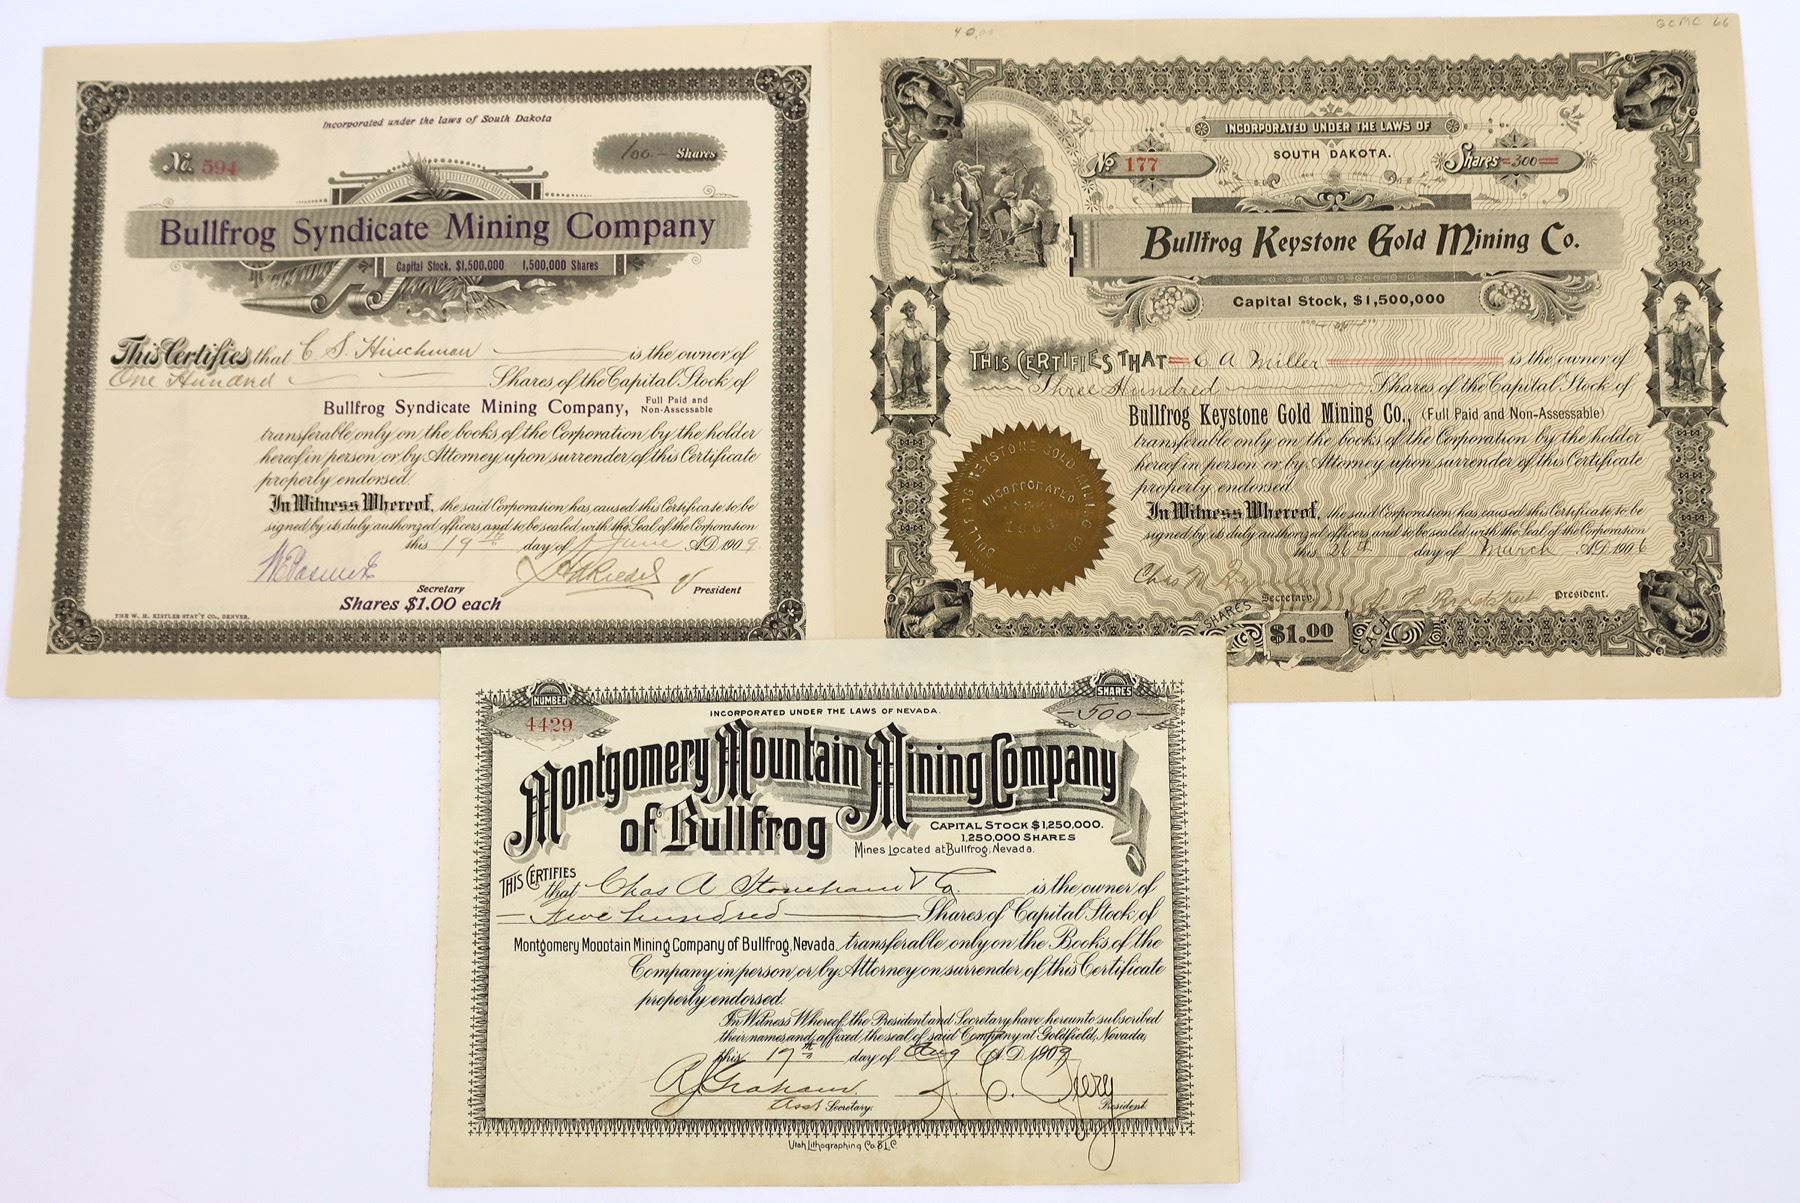 Incorporated under the laws of South Dakota
No. 594
100 - Shares
Bullfrog Syndicate Mining Company
Capital Stock, $1,500,000 1,500,000 Shares
This Certifies that C. S. Hinchman is the owner of
One Hundred Shares of the Capital Stock of
Bullfrog Syndicate Mining Company, Full Paid and Non-Assessable
transferable only on the books of the Corporation by the holder
hereof in person or by Attorney upon surrender of this Certificate
properly endorsed.
In Witness Whereof, the said Corporation has caused this Certificate to be
signed by its duly authorized officers and to be sealed with the Seal of the Corporation
this 19th day of June A.D. 1909.
Secretary
President
Shares $1.00 each
THE W. H. KISTLER STAT'Y CO., DENVER.
40.00
GCMC 66
INCORPORATED UNDER THE LAWS OF
SOUTH DAKOTA.
No 177
Shares 300
Bullfrog Keystone Gold Mining Co.
Capital Stock, $1,500,000
THIS CERTIFIES THAT C A Miller is the owner of
Three Hundred Shares of the Capital Stock of
Bullfrog Keystone Gold Mining Co., (Full Paid and Non-Assessable)
transferable only on the books of the Corporation by the holder
hereof in person or by Attorney upon surrender of this Certificate
properly endorsed.
In Witness Whereof, the said Corporation has caused this Certificate to be
signed by its duly authorized officers and to be sealed with the Seal of the Corporation
this 26th day of March A.D. 1906
Chas
Secretary.
President.
SHARES $1.00 EACH
BULLFROG KEYSTONE GOLD MINING CO.
INCORPORATED
NUMBER
4429
SHARES
500
INCORPORATED UNDER THE LAWS OF NEVADA.
Montgomery Mountain Mining Company
of Bullfrog
CAPITAL STOCK $1,250,000.
1,250,000 SHARES
Mines Located at Bullfrog, Nevada.
THIS CERTIFIES
that Chas A Stoneham & Co. is the owner of
Five hundred Shares of Capital Stock of
Montgomery Mountain Mining Company of Bullfrog, Nevada, transferable only on the Books of the
Company in person or by Attorney on surrender of this Certificate
properly endorsed.
In Witness Whereof, the President and Secretary have hereunto subscribed
their names and affixed the seal of said Company at Goldfield, Nevada,
this 17th day of Aug A.D. 1909
R J Graham
Asst Secretary.
President.
Utah Lithographing Co. S L C